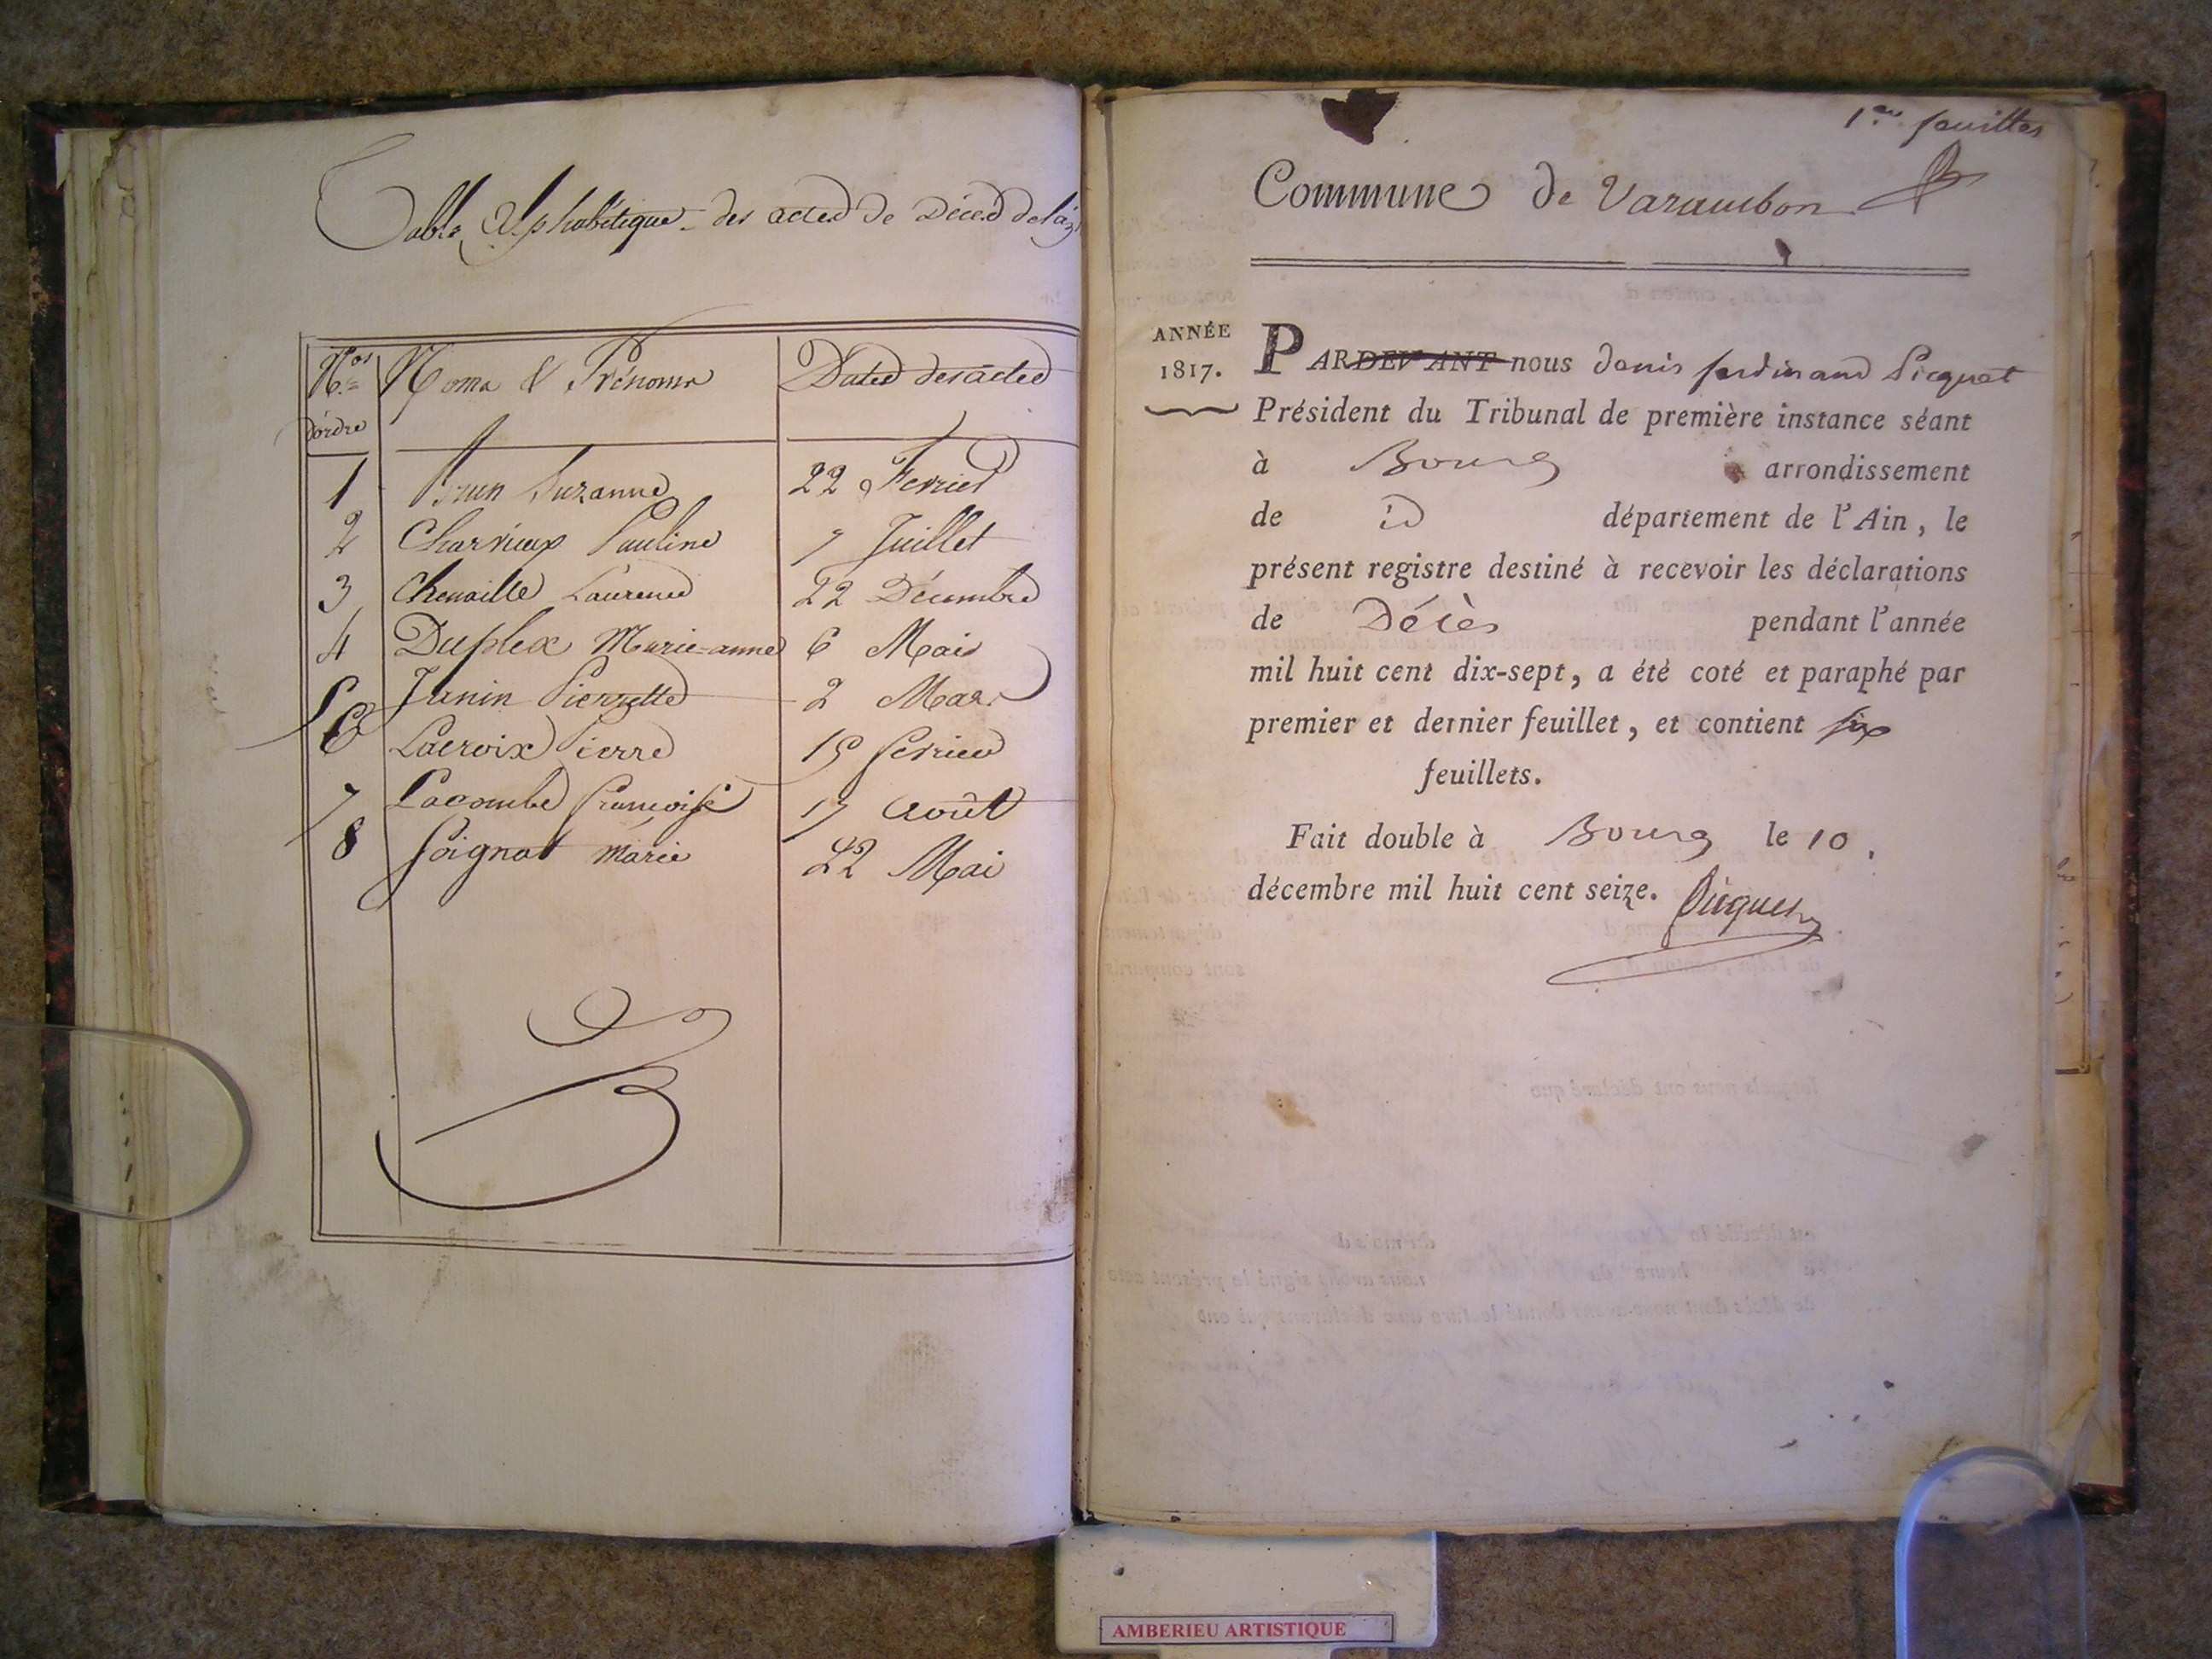 Table Alphabétique des actes de Décès de l'a
Nos d'ordre
Noms & Prénoms
Dates des actes
1 Brun Suzanne 22 Fevrier
2 Charvieux Pauline 7 Juillet
3 Chenaille Laurence 22 Décembre
4 Duplex Marie-anne 6 Mai
5 Janin Pierrette 2 Mars
6 Lacroix Pierre 15 fevrier
7 Lacombe françoise 17 Août
8 Soignat Marie 22 Mai
1er feuillet
Commune de Varambon
ANNÉE
1817.
PARDEVANT nous denis ferdinand Picquet
Président du Tribunal de première instance séant
à Bourg arrondissement
de id département de l'Ain, le
présent registre destiné à recevoir les déclarations
de Décès pendant l'année
mil huit cent dix-sept, a été coté et paraphé par
premier et dernier feuillet, et contient six
feuillets.
Fait double à Bourg le 10
décembre mil huit cent seize. Picquet
AMBERIEU ARTISTIQUE